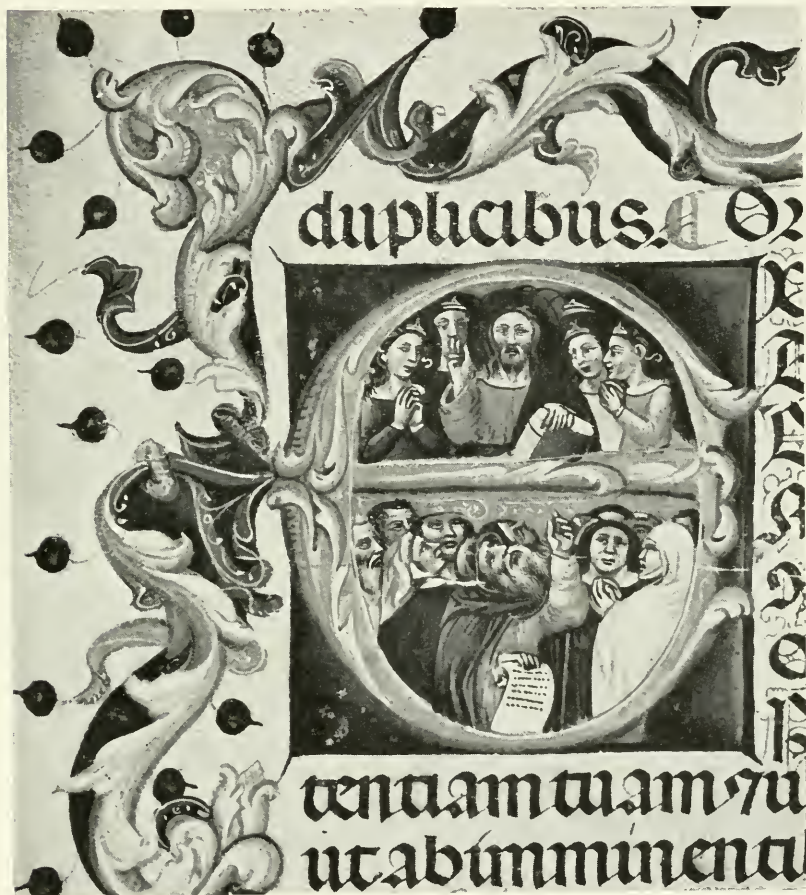 duplicibus. ¶ Oꝛ
tentiam tuam ⁊ u
ut ab imminenti